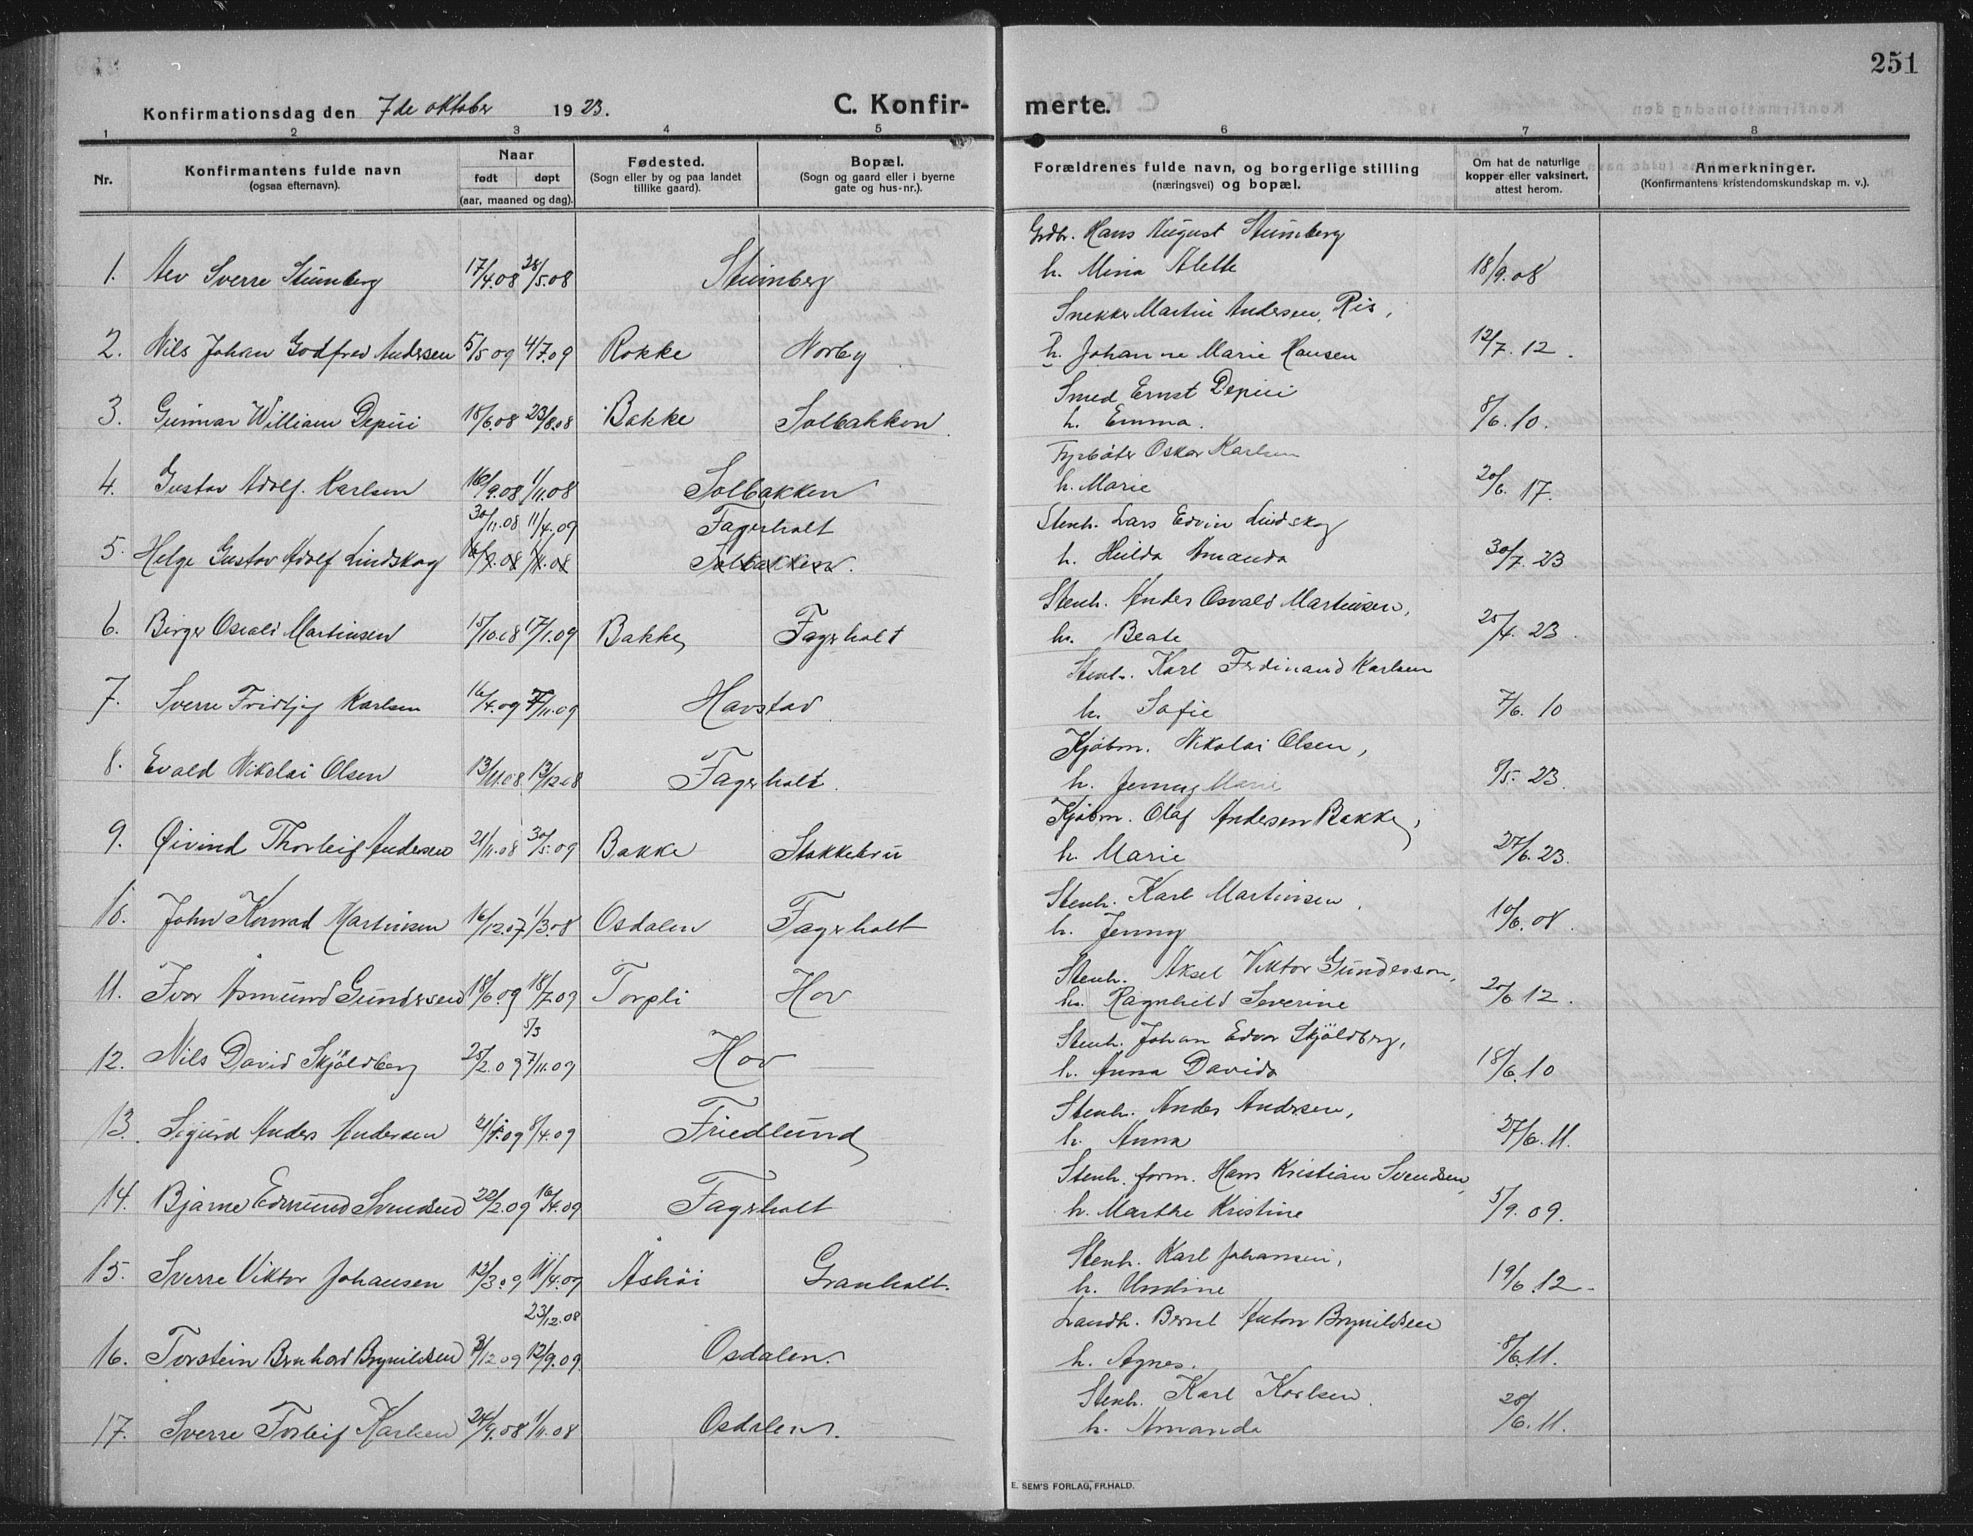 251
Konfirmationsdag den 7de oktober 1923. C. Konfirmerte.
1 2 3 4 5 6 7 8
Nr. Konfirmantens fulde navn (ogsaa efternavn). Naar født døpt (aar, maaned og dag). Fødested. (Sogn eller by og paa landet tillike gaard). Bopæl. (Sogn og gaard eller i byerne gate og hus-nr.). Forældrenes fulde navn, og borgerlige stilling (næringsvei) og bopæl. Om hat de naturlige kopper eller vaksinert, attest herom. Anmerkninger. (Konfirmantens kristendomskundskap m. v.).
Grdbr. Hans August Stumberg
1. Alv Sverre Stumberg 17/4.08 28/5.08 Stumberg h. Mina Alette 18/9.08
Snekker Martin Andersen, Ris,
2. Nils Johan Godfred Andersen 5/5 09 4/7.09 Rokke Norby h. Johanne Marie Hansen 12/7. 12.
Smed Ernst Depui
3. Gunnar William Depui 18/6.08 23/8.08 Bakke Solbakken h. Emma. 8/6. 10.
Fyrbøter Oskar Karlsen
4. Gustav Adolf Karlsen 16/9.08 1/11.08 Solbakken h. Marie 20/6. 17.
30/11.08 11/4.09 Fagerholt Stenh. Lars Edvin Lindskog
5. Helge Gustav Adolf Lindskog 16/9.08 1/11.08 Solbakken. h. Hilda Amanda 30/7. 23
Stenh. Anders Osvald Martinsen,
6. Birger Osvald Martinsen 15/10.08 17/1.09 Bakke Fagerholt h. Beate 25/4. 23.
Stenh. Karl Ferdinand Karlsen
7. Sverre Fridtjof Karlsen 16/4.09 7/11.09 Havstad h. Sofie 7/6. 10
Kjøbm. Nikolai Olsen,
8. Evald Nikolai Olsen 13/11.08 13/12.08 Fagerholt. h. Jenny Marie 8/5. 23
Kjøbm. Olaf Andersen Bakke,
9. Øivind Thorleif Andersen 21/11.08 30/5.09 Bakke Stokkebru h. Marie 27/6. 23.
Stenh. Karl Martinsen.
10. John Konrad Martinsen 16/12.07 1/3.08 Osdalen Fagerholt h. Jenny 10/6.08.
Stenh. Aksel Viktor Gundersen,
11. Ivar Asmund Gundersen 18/6.09 18/7.09 Torpli Hov h. Ragnhild Severine 20/6 12.
5/3 Stenh. Johan Edvor Skjöldberg,
12. Nils David Skjöldberg 25/2.09 7/11.09 Hov h. Anna Davida 18/6.10
Stenh. Anders Andersen,
13. Sigurd Anders Andersen 21/1.09 8/4.09 Friedlund h. Anna 27/6. 11.
Stenh. form. Hans Kristian Svendsen,
14. Bjarne Edmund Svendsen 22/2.09 16/4.09 Fagerholt h. Marthe Kristine 5/9. 09.
Stenh. Karl Johansen,
15. Sverre Viktor Johansen 12/3.09 11/4.09 Åshöi Granholt. h. Undine 19/6.12
23/12.08 Landh. Bernt Anton Brynildsen
16. Torstein Bernhard Brynildsen 3/12.09 12/9.09 Osdalen. h. Agnes. 8/6.11.
Stenh. Karl Karlsen.
17. Sverre Torleif Karlsen 24/9.08 1/11.08 Osdalen. h. Amanda 28/6.11.
E. SEM'S FORLAG, FR.HALD.